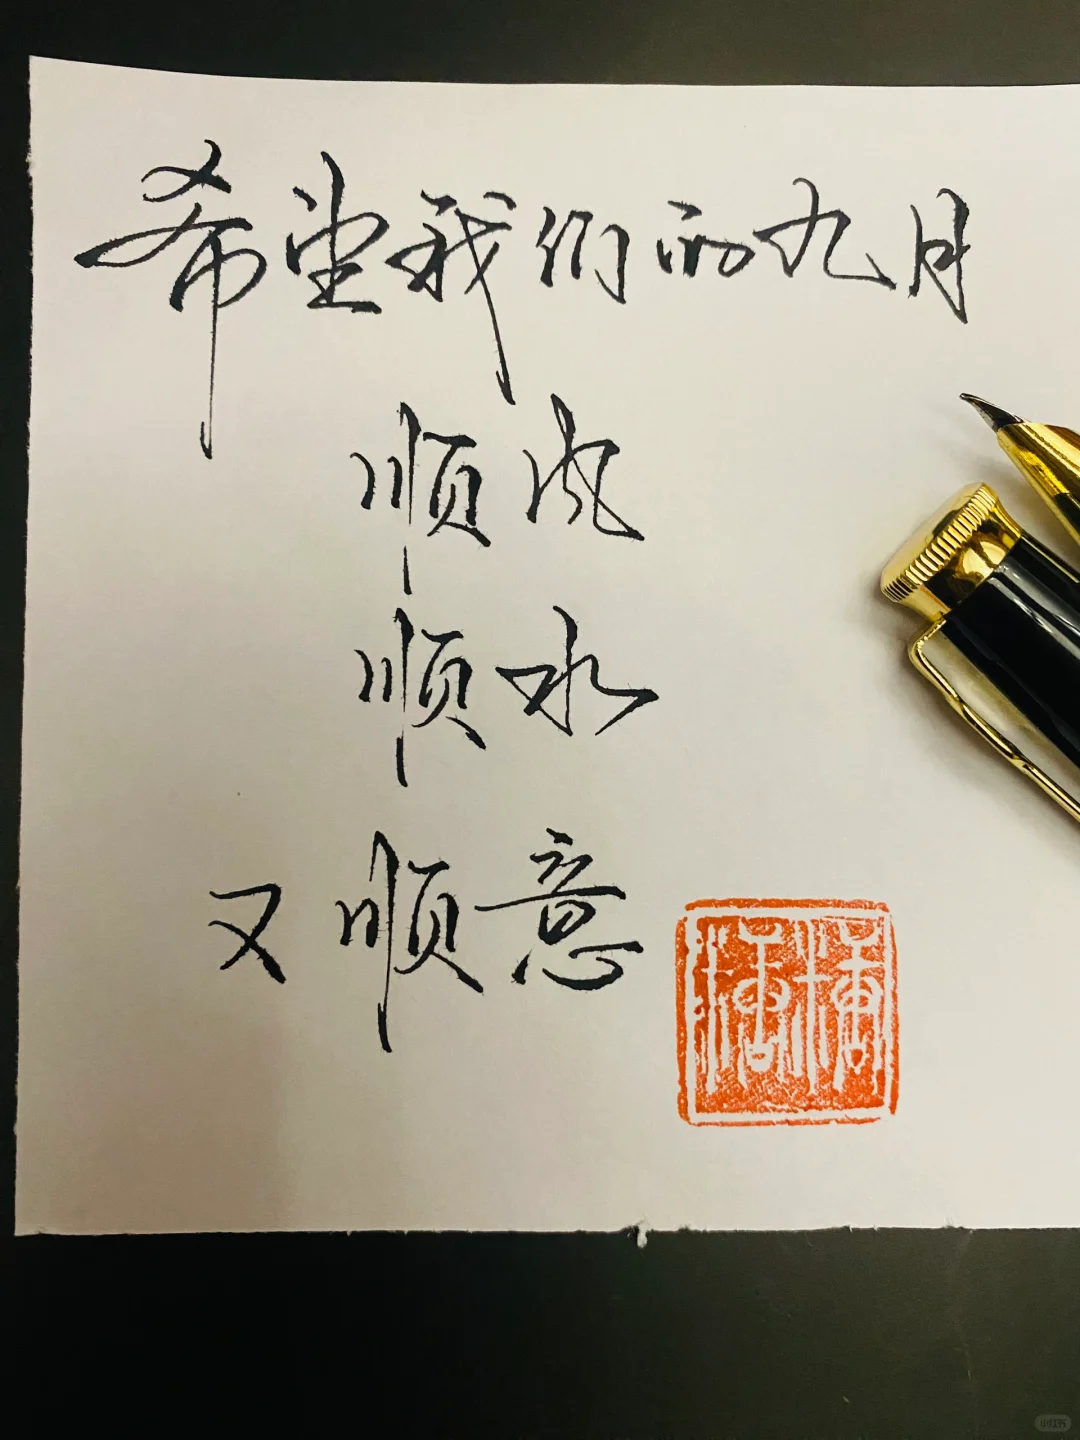 希望我们的九月
顺风
顺水
又顺意